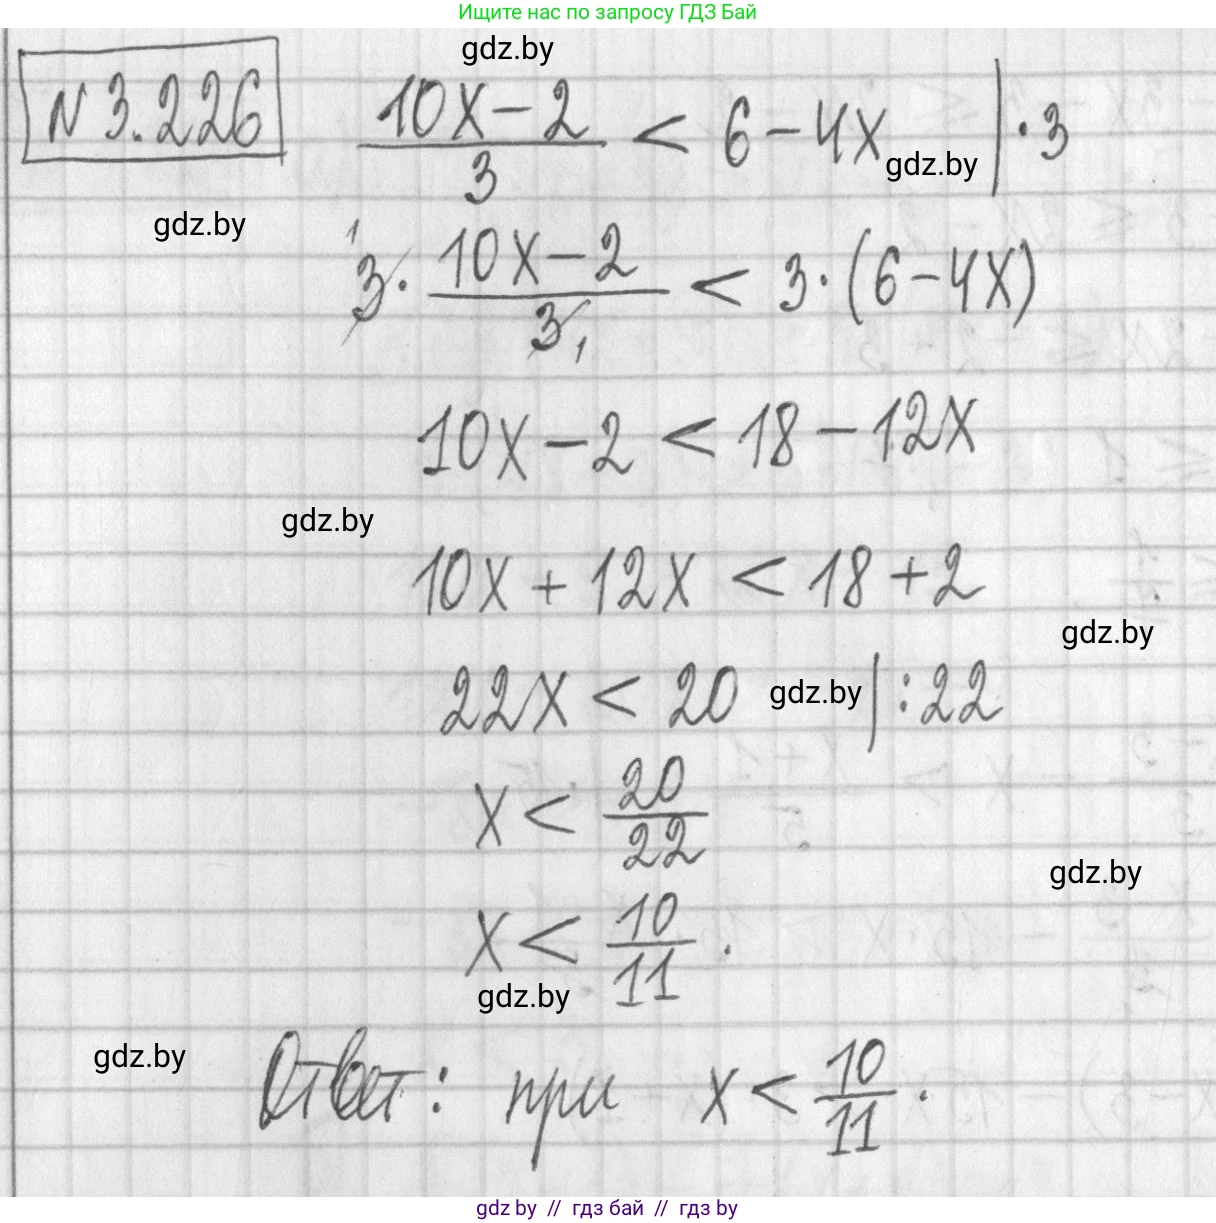 Ищите нас по запросу ГДЗ Бай
gdz.by
N 3.226
(10x-2)/3 < 6-4x | ·3
gdz.by
gdz.by
3¹ · (10x-2)/3₁ < 3·(6-4x)
10x-2 < 18-12x
gdz.by
10x+12x < 18+2
gdz.by
22x < 20 gdz.by | :22
x < 20/22
gdz.by
x < 10/11.
gdz.by
gdz.by
Ответ: при x < 10/11.
gdz.by // гдз бай // гдз by